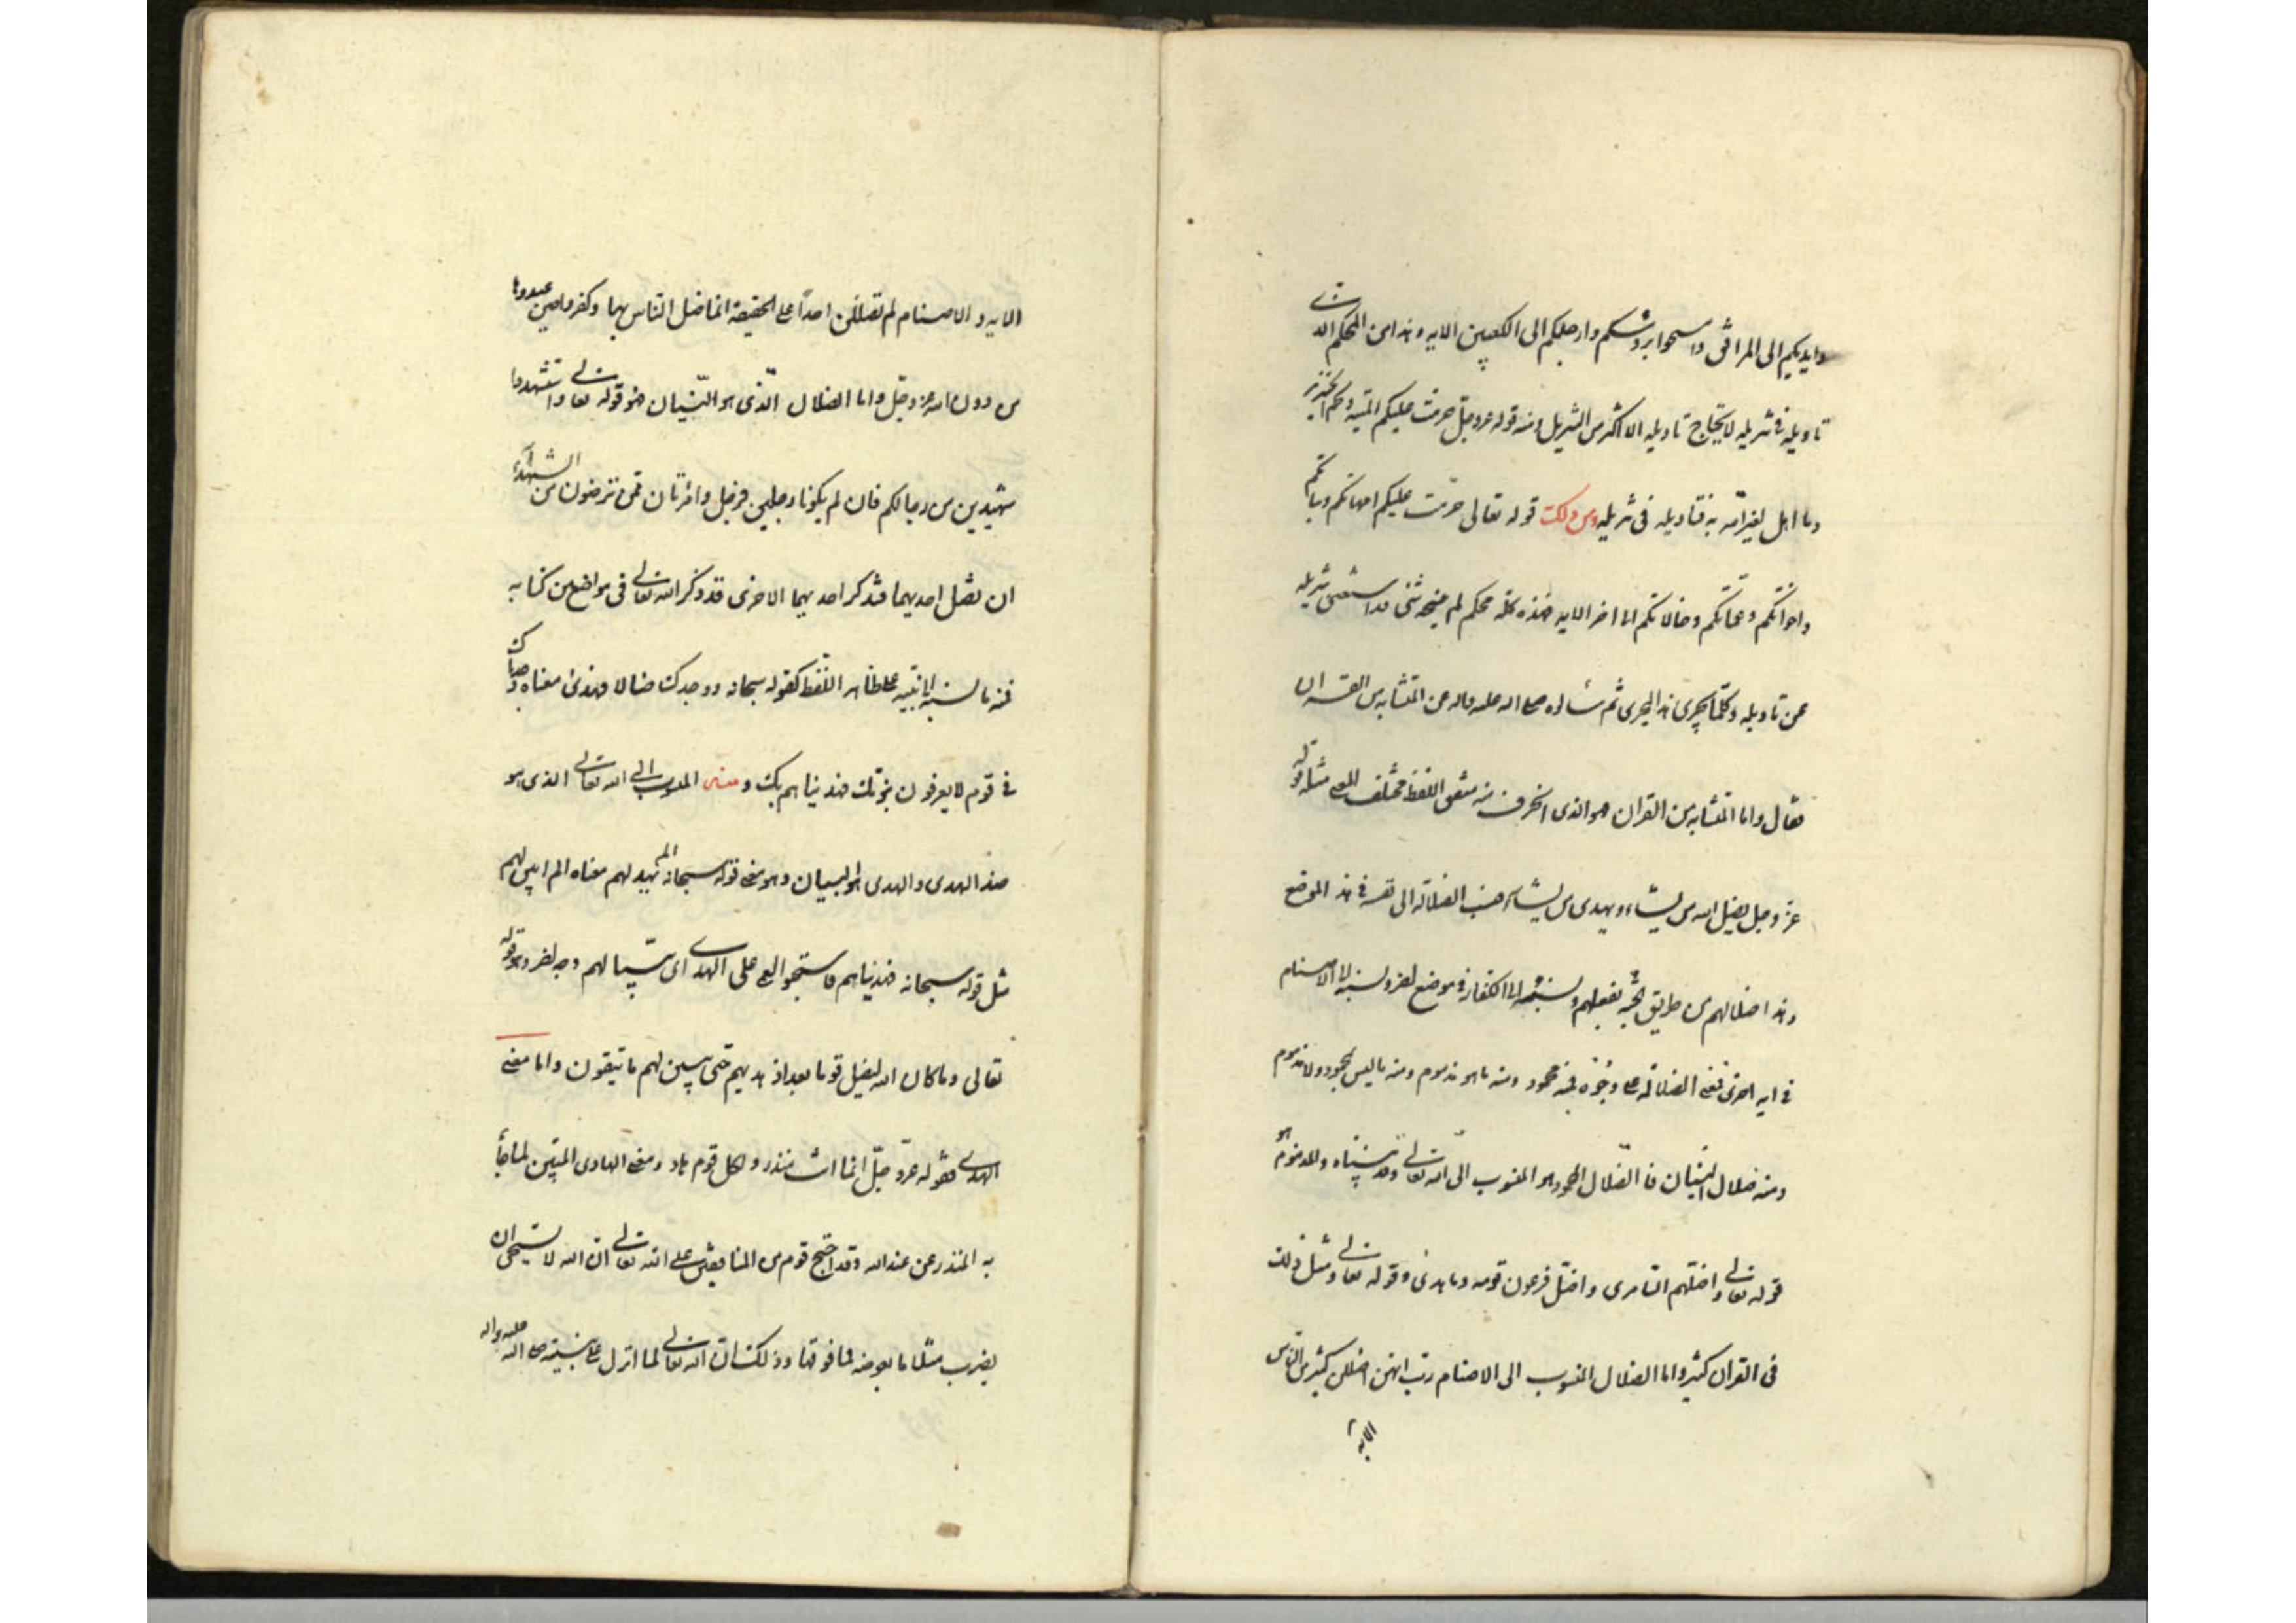 وايديكم الى المرافق وامسحوا برؤسكم وارجلكم الى الكعبين الايه وهذا من المحكم الذى
تاويله فى تنزيله لا يحتاج تاويله الا اكثر من التنزيل ومنه قوله عز وجل حرمت عليكم الميتة والدم ولحم الخنزير
وما اهل لغير الله به فتاويله فى تنزيله ومن ذلك قوله تعالى حرمت عليكم امهاتكم وبناتكم
واخواتكم وعماتكم وخالاتكم الى اخر الايه فهذه كله محكم لم ينسخه شئ قد استغنى بتنزيله
عن تاويله وكلما يجرى هذا المجرى ثم سألوه صلى الله عليه واله عن المتشابه من القران
فقال واما المتشابه من القران فهو الذى انحرف منه متفق اللفظ مختلف المعنى مثل قوله
عز وجل يضل الله من يشاء ويهدى من يشاء فنسب الضلالة الى نفسه فى هذا الموضع
وهذا ضلالهم عن طريق الجنة بفعلهم ونسبه الى الكفار فى موضع اخر ونسبه الى الاصنام
فى ايه اخرى فمعنى الضلالة على وجوه فمنه محمود ومنه ما هو مذموم ومنه ما ليس بمحمود ولا مذموم
ومنه ضلال النسيان فالضلال المحمود هو المنسوب الى الله تعالى وقد بيناه والمذموم هو
قوله تعالى واضلهم السامرى واضل فرعون قومه وما هدى وقوله تعالى ومثل ذلك
فى القران كثير واما الضلال المنسوب الى الاصنام رب انهن اضللن كثيرا من الناس
الايه
الايه و الاصنام لم تضللن احدا على الحقيقة انما ضل الناس بها وكفروا حين عبدوها
من دون الله عز وجل واما الضلال الذى هو النسيان فهو قوله تعالى واستشهدوا
شهيدين من رجالكم فان لم يكونا رجلين فرجل وامرتان ممن ترضون من الشهداء
ان تضل احديهما فتذكر احديهما الاخرى قد ذكر الله تعالى فى مواضع من كتابه
فمنه ما نسبه الى نبيه على ظاهر اللفظ كقوله سبحانه ووجدك ضالا فهدى معناه وجدناك
فى قوم لا يعرفون نبوتك فهديناهم بك و معنى المنسوب الى الله تعالى الذى هو
ضد الهدى والهدى هو البيان وهو معنى قوله سبحانه الم يهد لهم معناه الم ابين لهم
مثل قوله سبحانه فهديناهم فاستحبوا العمى على الهدى اى بينا لهم وجه اخر وهو قوله
تعالى وما كان الله ليضل قوما بعد اذ هديهم حتى يبين لهم ما يتقون واما معنى
الهدى فقوله عز وجل انما انت منذر ولكل قوم هاد ومعنى الهادى المبين لما جاء
به المنذر من عند الله وقد احتج قوم من المنافقين على الله تعالى ان الله لا يستحيى ان
يضرب مثلا ما بعوضه فما فوقها وذلك ان الله تعالى لما انزل على نبيه صلى الله عليه واله